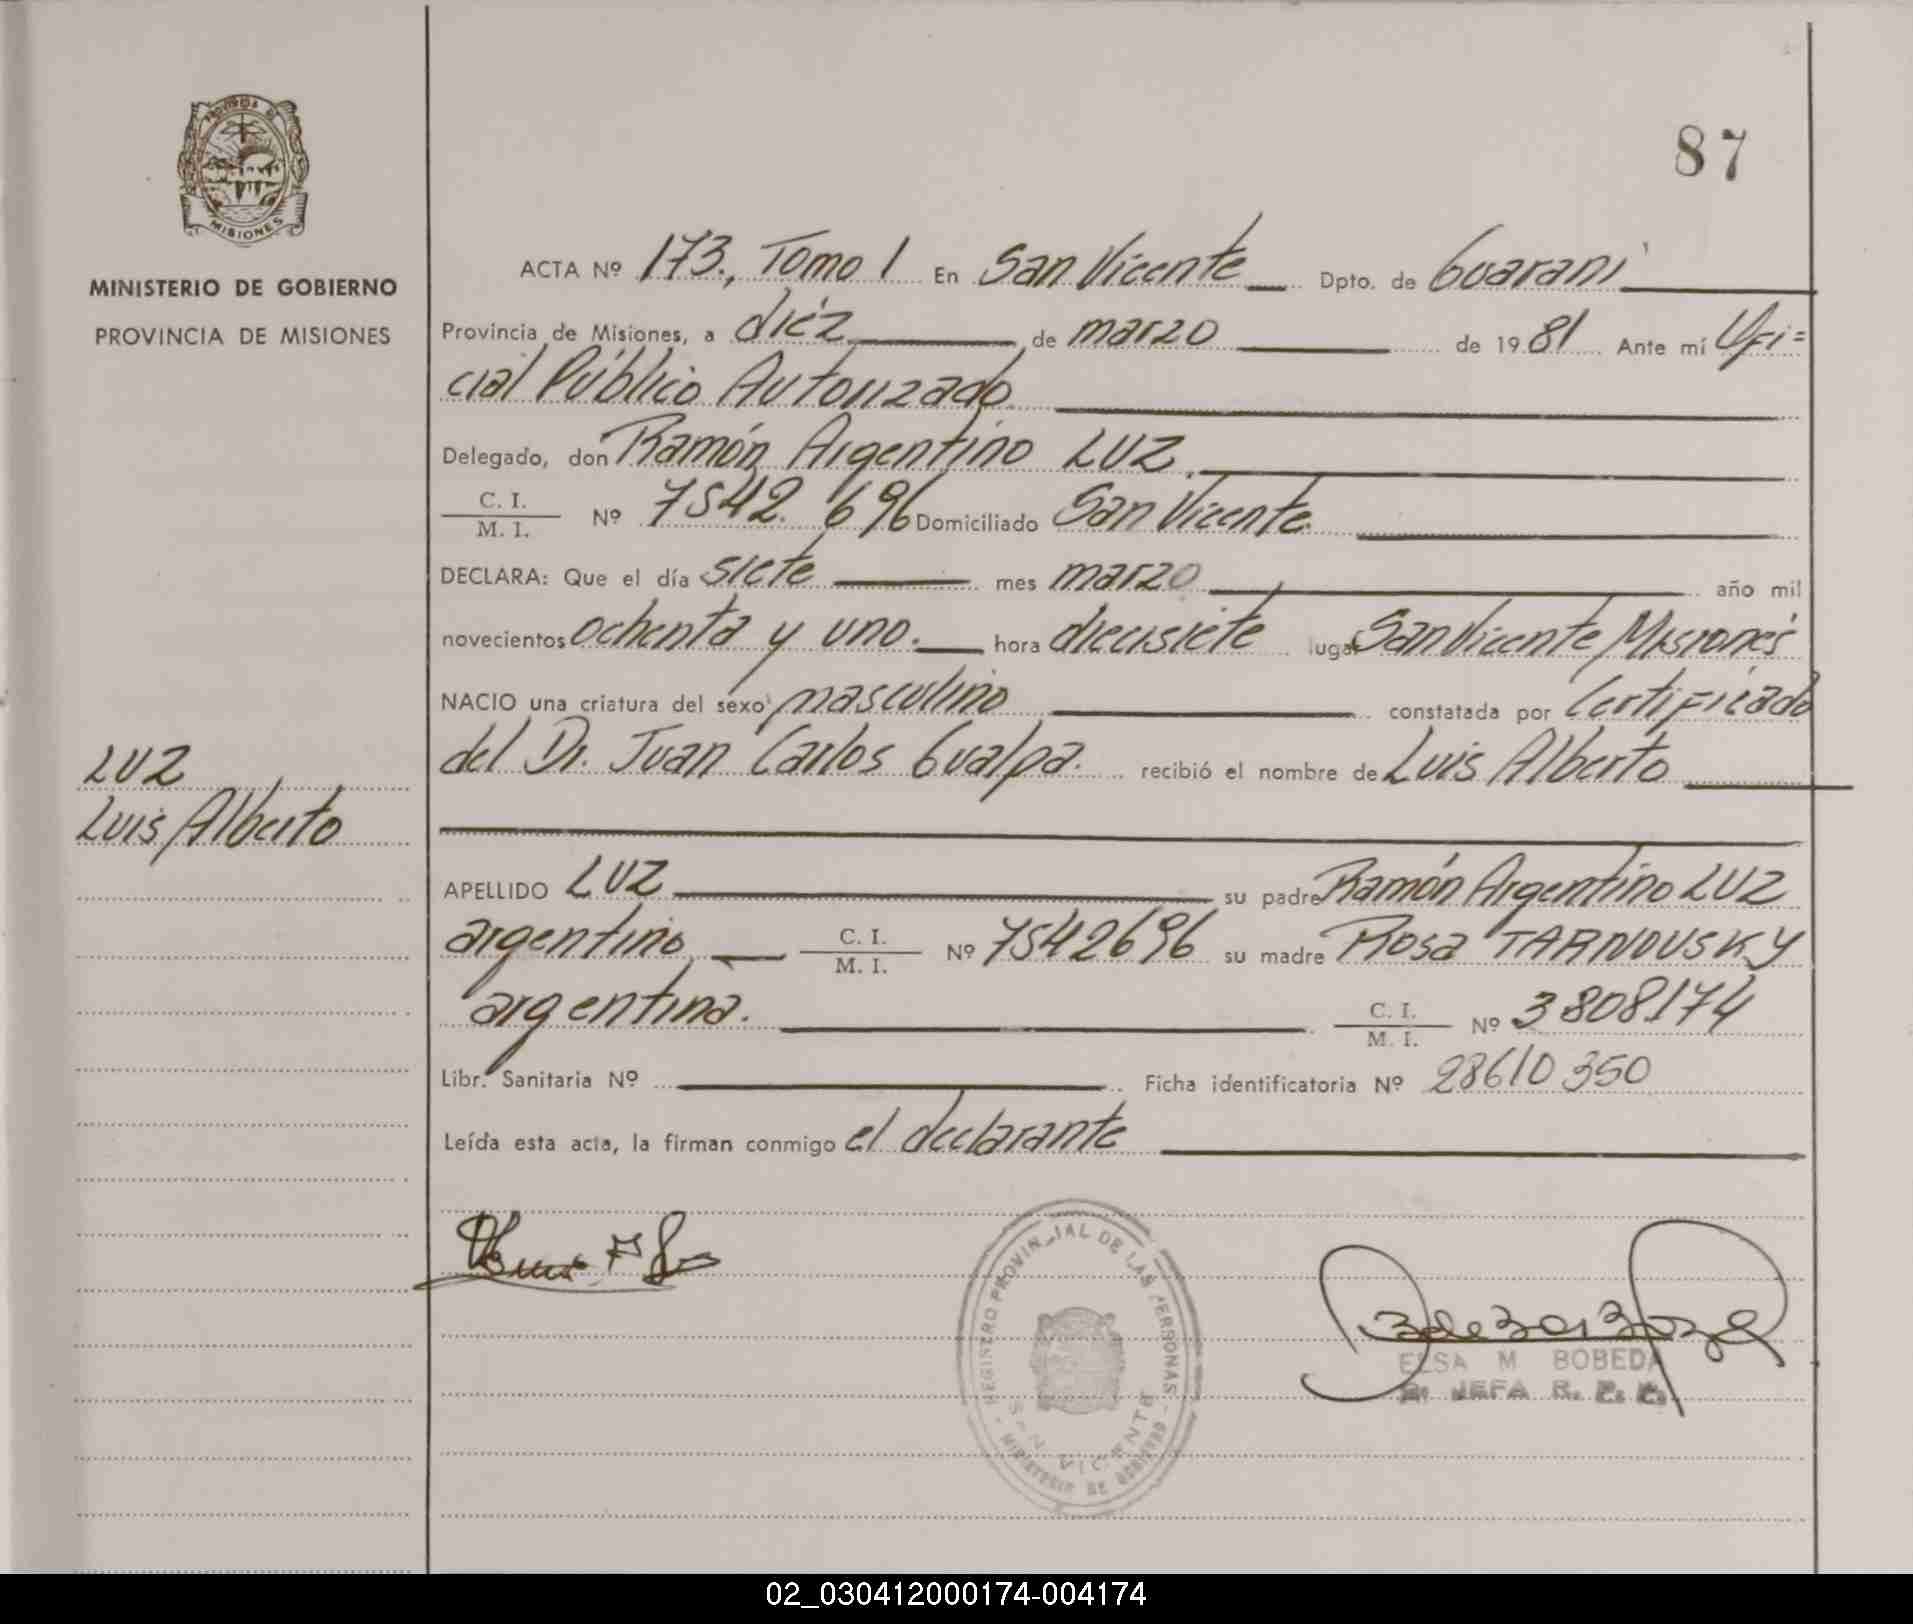 87
PROVINCIA DE
MISIONES
MINISTERIO DE GOBIERNO
PROVINCIA DE MISIONES
LUZ
Luis Alberto
ACTA Nº 173., Tomo 1 En San Vicente Dpto. de Guaraní
Provincia de Misiones, a diéz de marzo de 1981 Ante mí Ofi=
cial Público Autorizado
Delegado, don Ramón Argentino LUZ
C. I.
M. I. Nº 7542.696 Domiciliado San Vicente
DECLARA: Que el día siete mes marzo año mil
novecientos ochenta y uno. hora diecisiete lugar San Vicente Misiones
NACIO una criatura del sexo masculino constatada por Certificado
del Dr. Juan Carlos Gualpa. recibió el nombre de Luis Alberto
APELLIDO LUZ su padre Ramón Argentino LUZ
argentino C. I.
M. I. Nº 7542696 su madre Rosa TARNOUSKY
argentina. C. I.
M. I. Nº 3808174
Libr. Sanitaria Nº Ficha identificatoria Nº 28610350
Leída esta acta, la firman conmigo el declarante
REGISTRO PROVINCIAL DE LAS PERSONAS
SAN VICENTE
MINISTERIO DE GOBIERNO
ELSA M BOBEDA
JEFA R. P.
02_030412000174-004174